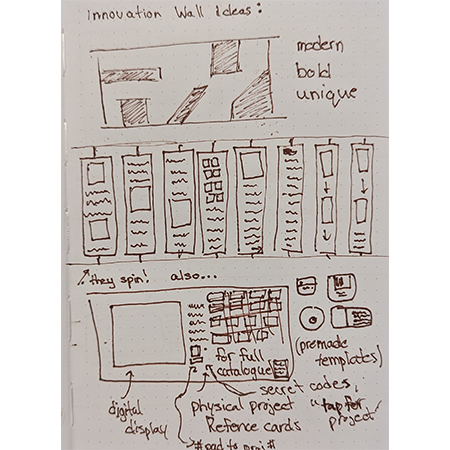 Innovation Wall Ideas:
modern
bold
unique
they spin! also...
for full
catalogue
(premade
templates)
digital
display
physical project
Refence cards
secret codes,
tap for
project